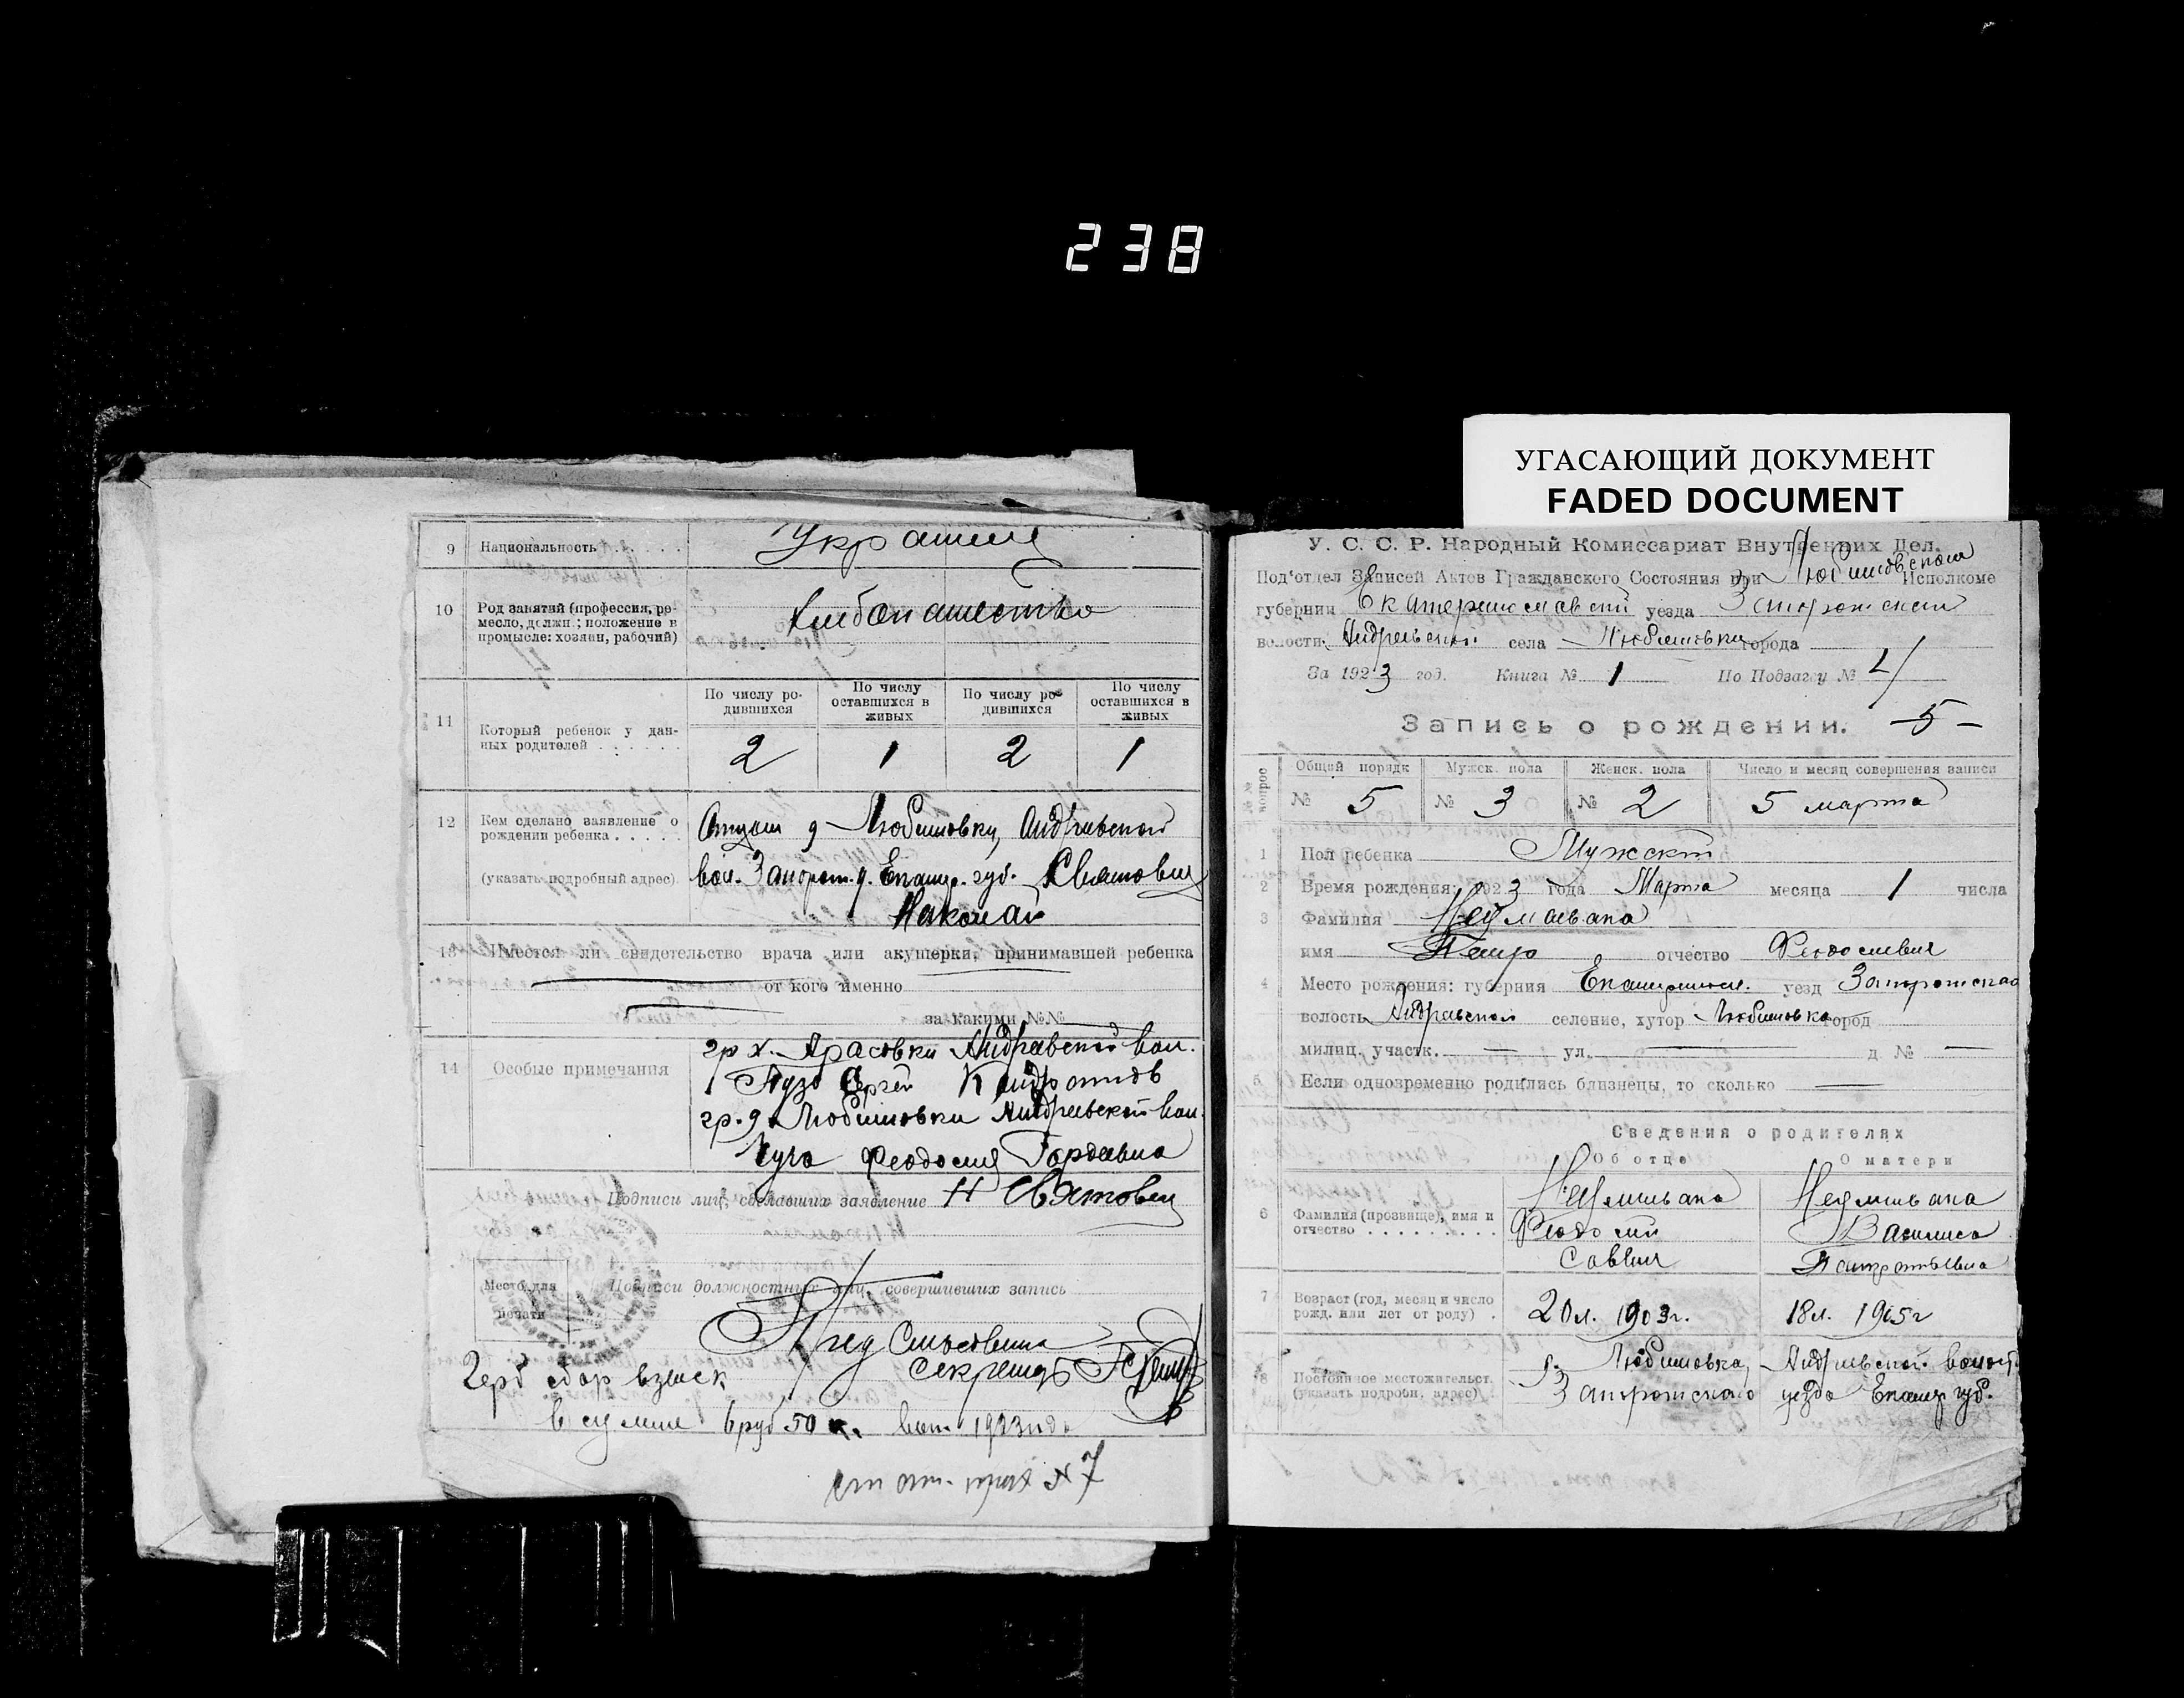 238
УГАСАЮЩИЙ ДОКУМЕНТ
FADED DOCUMENT
9 Национальность . . . . . Украинц
10 Род занятий (профессия, ремесло, должн.; положение в промысле: хозяин, рабочий) Хлебопашество
11 Который ребенок у данных родителей . . . . . .
По числу родившихся По числу оставшихся в живых По числу родившихся По числу оставшихся в живых
2 1 2 1
12 Кем сделано заявление о рождении ребенка . . . . . (указать подробный адрес)
Отцом д. Любимовки, Андреевской
вол. Запорож. у. Екатер. губ. Святовец
Николай
13 Имеется ли свидетельство врача или акушерки, принимавшей ребенка
от кого именно
за какими №№
14 Особые примечания
гр. х. Андреевской вол.
Пузо Сергей Кондратов
гр. д. Любимовки Андреевской вол.
Феодосия Гордеевна
Подписи лиц, сделавших заявление Н Святовец
Место для печати
Подписи должностных лиц, совершивших запись
Пред
Секретарь
Герб сбор взыск
в сумме 6 руб 50 к. 1923 года
№ 7
У. С. С. Р. Народный Комиссариат Внутренних Дел.
Под'отдел Записей Актов Гражданского Состояния при Любимовском Исполкоме
губернии Екатеринославской уезда Запорожского
волости Андреевской села Любимовки города
За 1923 год. Книга № 1 По Подзагсу №
Запись о рождении. — 5 —
№№ вопрос
Общей порядк Мужск. пола Женск. пола Число и месяц совершения записи
№ 5 № 3 № 2 5 марта
1 Пол ребенка Мужской
2 Время рождения: 1923 года Марта месяца 1 числа
3 Фамилия
имя Петр отчество Феодосиевич
4 Место рождения: губерния Екатериносл. уезд Запорожская
волость Андреевской селение, хутор Любимовка город
милиц. участк. — ул. — д № —
5 Если одновременно родились близнецы, то сколько —
Сведения о родителях
Об отце О матери
6 Фамилия (прозвище), имя и отчество . . . . . . . . .
Феодосий Василиса
Саввич
7 Возраст (год, месяц и число рожд. или лет от роду) . 20 л. 1903 г. 18 л. 1905 г
8 Постоянное местожительст. (указать подробн. адрес) .
Любимовка, Андреевской волост
Запорожского уезда Екатер губ.